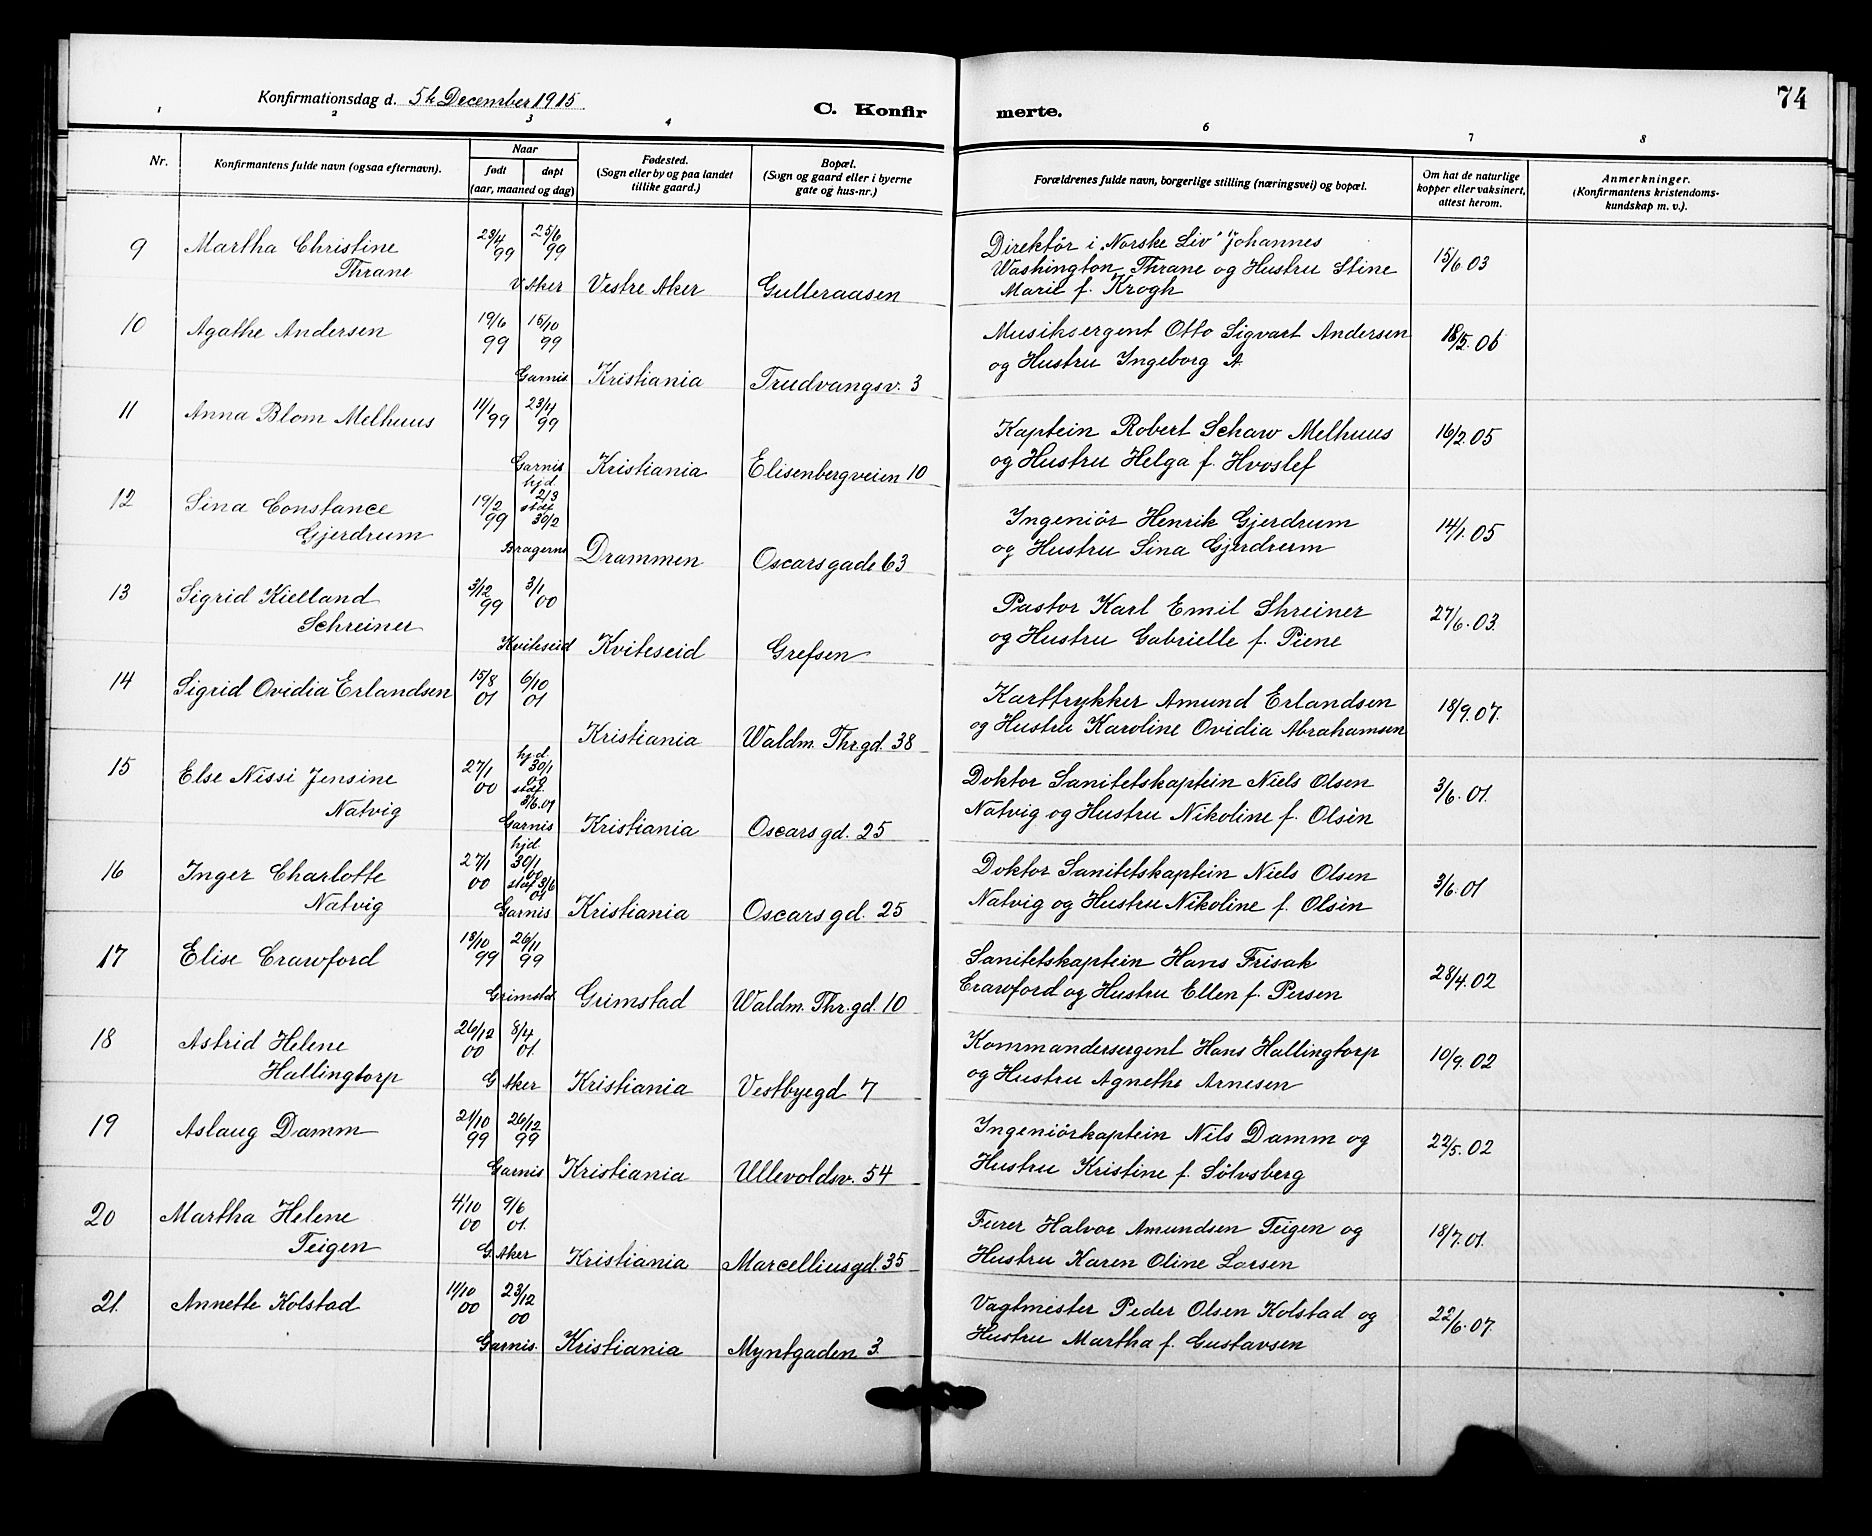 74
Konfirmationsdag d. 5te December 1915
C. Konfirmerte.
1 2 3 4 6 7 8
Nr.
Konfirmantens fulde navn (ogsaa efternavn).
Naar
født
døpt
(aar, maaned og dag)
Fødested.
(Sogn eller by og paa landet
tillike gaard.)
Bopæl.
(Sogn og gaard eller i byerne
gate og hus-nr.)
Forældrenes fulde navn, borgerlige stilling (næringsvei) og bopæl.
Om hat de naturlige
kopper eller vaksinert,
attest herom.
Anmerkninger.
(Konfirmantens kristendoms-
kundskap m. v.).
9 Martha Christine 23/4 99 25/6 99
Thrane V Aker Vestre Aker Gulleraasen
Direktör i "Norske Liv" Johannes
Washington Thrane og Hustru Stine
Marie f. Krogh
15/6 03
10 Agathe Andersen 19/6 99 15/10 99
Garnis Kristiania Trudvangsv. 3
Musiksergent Otto Sigvart Andersen
og Hustru Ingeborg A
18/5. 06
11 Anna Blom Melhuus 11/1 99 23/4 99
Garnis Kristiania Elisenbergveien 10
Kaptein Robert Schaw Melhuus
og Hustru Helga f. Hvoslef
16/2. 05
12 Sina Constance 19/2 99 hjd. 2/3 stadf 30/2
Gjerdrum Bragerns Drammen Oscarsgade 63
Ingeniör Henrik Gjerdrum
og Hustru Sina Gjerdrum
14/1. 05
13 Sigrid Kielland 3/12 99 3/1 00
Schreiner Kviteseid Kviteseid Grefsen
Pastor Karl Emil Shreiner
og Hustru Gabrielle f. Piene
27/6. 03.
14 Sigrid Ovidia Erlandsen 15/8 01 6/10 01
Kristiania Waldm. Thr.gd. 38
Karttrykker Amund Erlandsen
og Hustru Karoline Ovidia Abrahamsen
18/9. 07.
15 Else Nissi Jensine 27/1 00 hjd. 30/1 00 stadf. 3/6. 01
Natvig Garnis Kristiania Oscars gd. 25
Doktor Sanitetskaptein Niels Olsen
Natvig og Hustru Nikoline f. Olsen
3/6. 01.
16 Inger Charlotte 27/1 00 hjd 30/1 00 stdf 3/6 01
Natvig Garnis Kristiania Oscars gd. 25
Doktor Sanitetskaptein Niels Olsen
Natvig og Hustru Nikoline f. Olsen
3/6. 01
17 Elise Crawford 18/10 99 26/11 99
Grimstad Grimstad Waldm. Thr.gd. 10
Sanitetskaptein Hans Frisak
Crawford og Hustru Ellen f. Persen
28/4. 02
18 Astrid Helene 26/12 00 8/4 01.
Hallingtorp G Aker Kristiania Vestbyegd 7
Kommandersergent Hans Hallingtorp
og Hustru Agnethe Arnesen
10/9. 02
19 Aslaug Damm 21/10 99 26/12 99
Garnis Kristiania Ullevoldsv. 54
Ingeniörkaptein Nils Damm og
Hustru Kristine f. Sölvsberg
22/5. 02
20 Martha Helene 4/10 00 9/6 01.
Teigen G. Aker Kristiania Marcelliusgd. 35
Furer Halvor Amundsen Teigen og
Hustru Karen Oline Larsen
18/7. 01.
21. Annette Kolstad 11/10 00 23/12 00
Garnis. Kristiania Myntgaden 3.
Vagtmester Peder Olsen Kolstad og
Hustru Martha f. Gustavsen
22/6. 07.